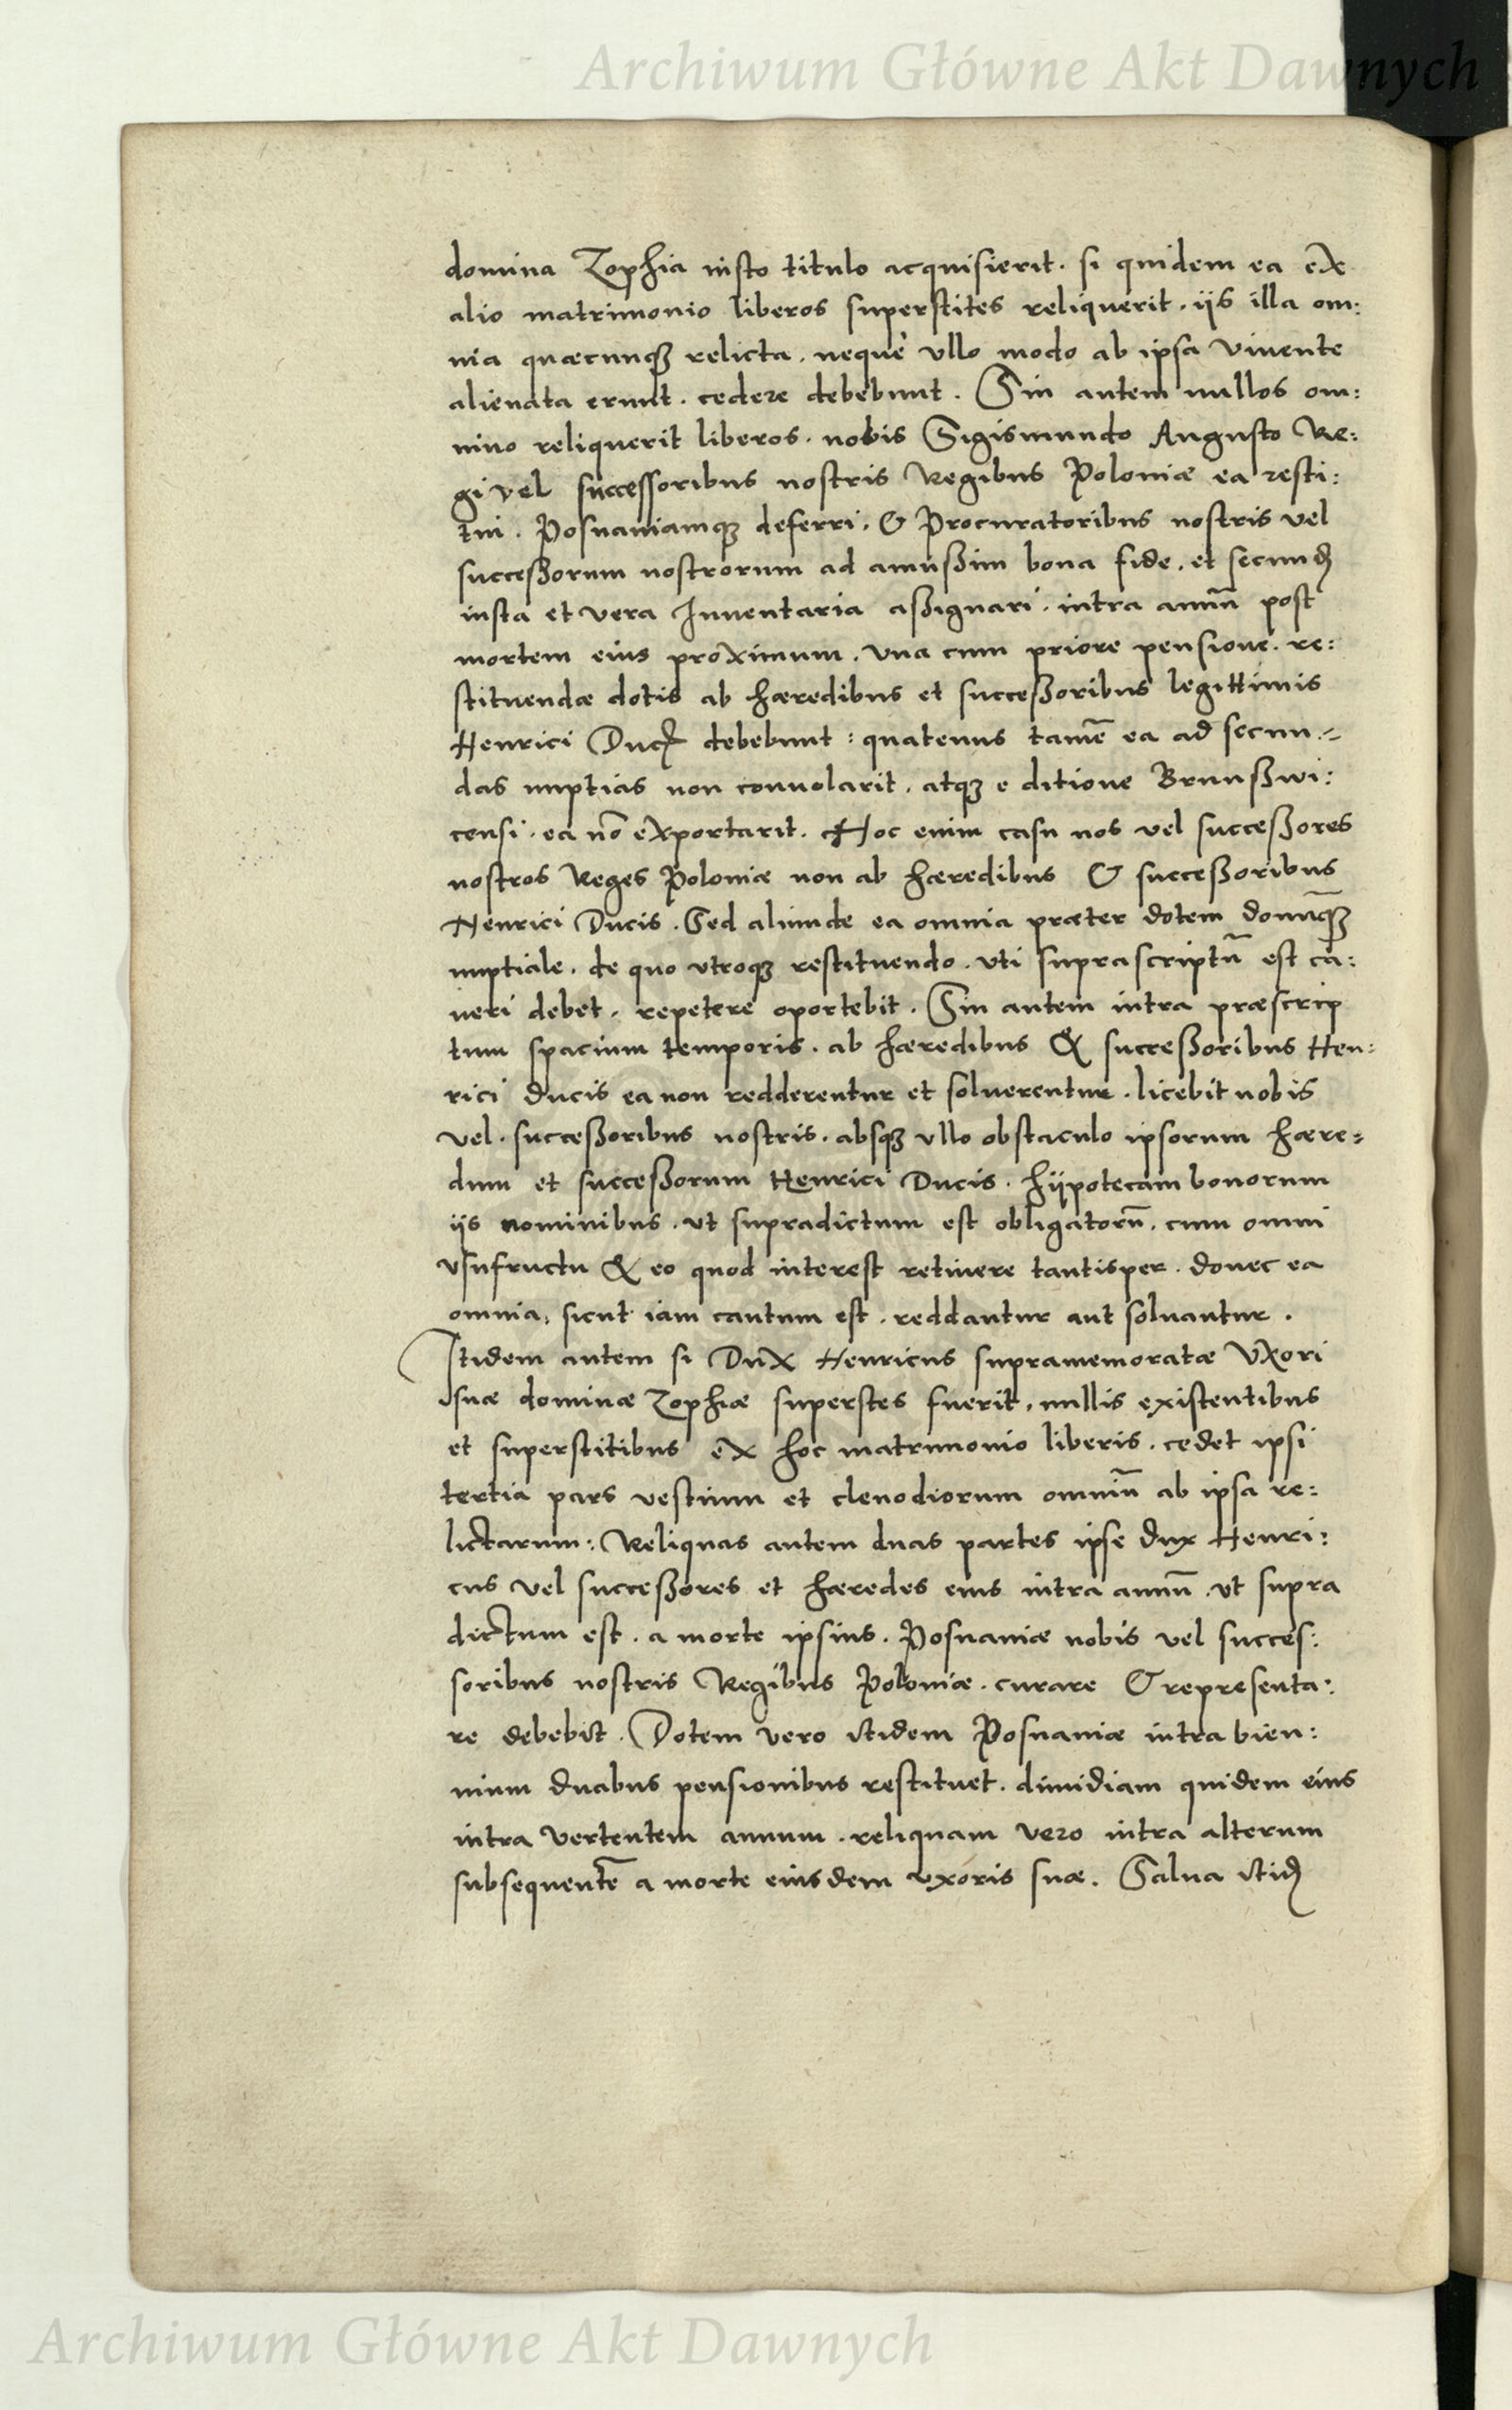 Archiwum Główne Akt Dawnych
domina Zophia iusto titulo acquisierit. si quidem ea ex
alio matrimonio liberos superstites reliquerit. iis illa om:
nia quæcunqꝫ relicta. neque ullo modo ab ipsa vivente
alienata erunt. cedere debebunt. Sin autem nullos om:
nino reliquerit liberos. nobis Sigismundo Augusto Re:
gi vel successoribus nostris Regibus Poloniæ ea resti:
tui. Posnaniamqꝫ deferri. & Procuratoribus nostris vel
succeßorum nostrorum ad amußim bona fide. et secundꝫ
iusta et vera Inventaria aßignari. intra annū post
mortem eius proximum. una cum priore pensione. re:
stituendæ dotis ab hæredibus et succeßoribus legittimis
Henrici Ducꝭ debebunt: quatenus tamē ea ad secun:
das nuptias non convolarit. atqꝫ e ditione Brunßwi:
censi. ea nō exportarit. Hoc enim casu nos vel succeßores
nostros Reges Poloniæ non ab hæredibus & succeßoribus
Henrici Ducis. Sed aliunde ea omnia præter dotem donūqꝫ
nuptiale. de quo utroqꝫ restituendo. uti suprascriptū est ca:
veri debet. repetere oportebit. Sin autem intra præscrip
tum spacium temporis. ab hæredibus & succeßoribus Hen:
rici Ducis ea non redderentur et solverentur. licebit nobis
vel. succeßoribus nostris. absqꝫ ullo obstaculo ipsorum hære=
dum et succeßorum Henrici Ducis. hÿpotecam bonorum
iis nominibus. ut supradictum est obligatorū. cum omni
usufructu & eo quod interest retinere tantisper. donec ea
omnia, sicut iam cautum est. reddantur aut solvantur.
Itidem autem si Dux Henricus supramemoratæ Uxori
suæ dominæ Zophiæ superstes fuerit, nullis existentibus
et superstitibus ex hoc matrimonio liberis. cedet ipsi
tertia pars vestium et clenodiorum omniū ab ipsa re:
lictarum: Reliquas autem duas partes ipse Dux Henri:
cus vel succeßores et hæredes eius intra annū. ut supra
dictum est. a morte ipsius. Posnaniæ nobis vel succes:
soribus nostris Regibus Poloniæ. curare & representa:
re debebit. Dotem vero itidem Posnaniæ intra bien:
nium duabus pensionibus restituet. dimidiam quidem eius
intra vertentem annum. reliquam vero intra alterum
subsequentē a morte eiusdem uxoris suæ. Salva itidꝫ
Archiwum Główne Akt Dawnych